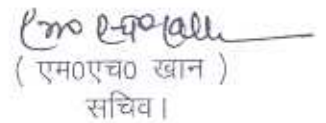 ( एम0एच0 खान )
सचिव।